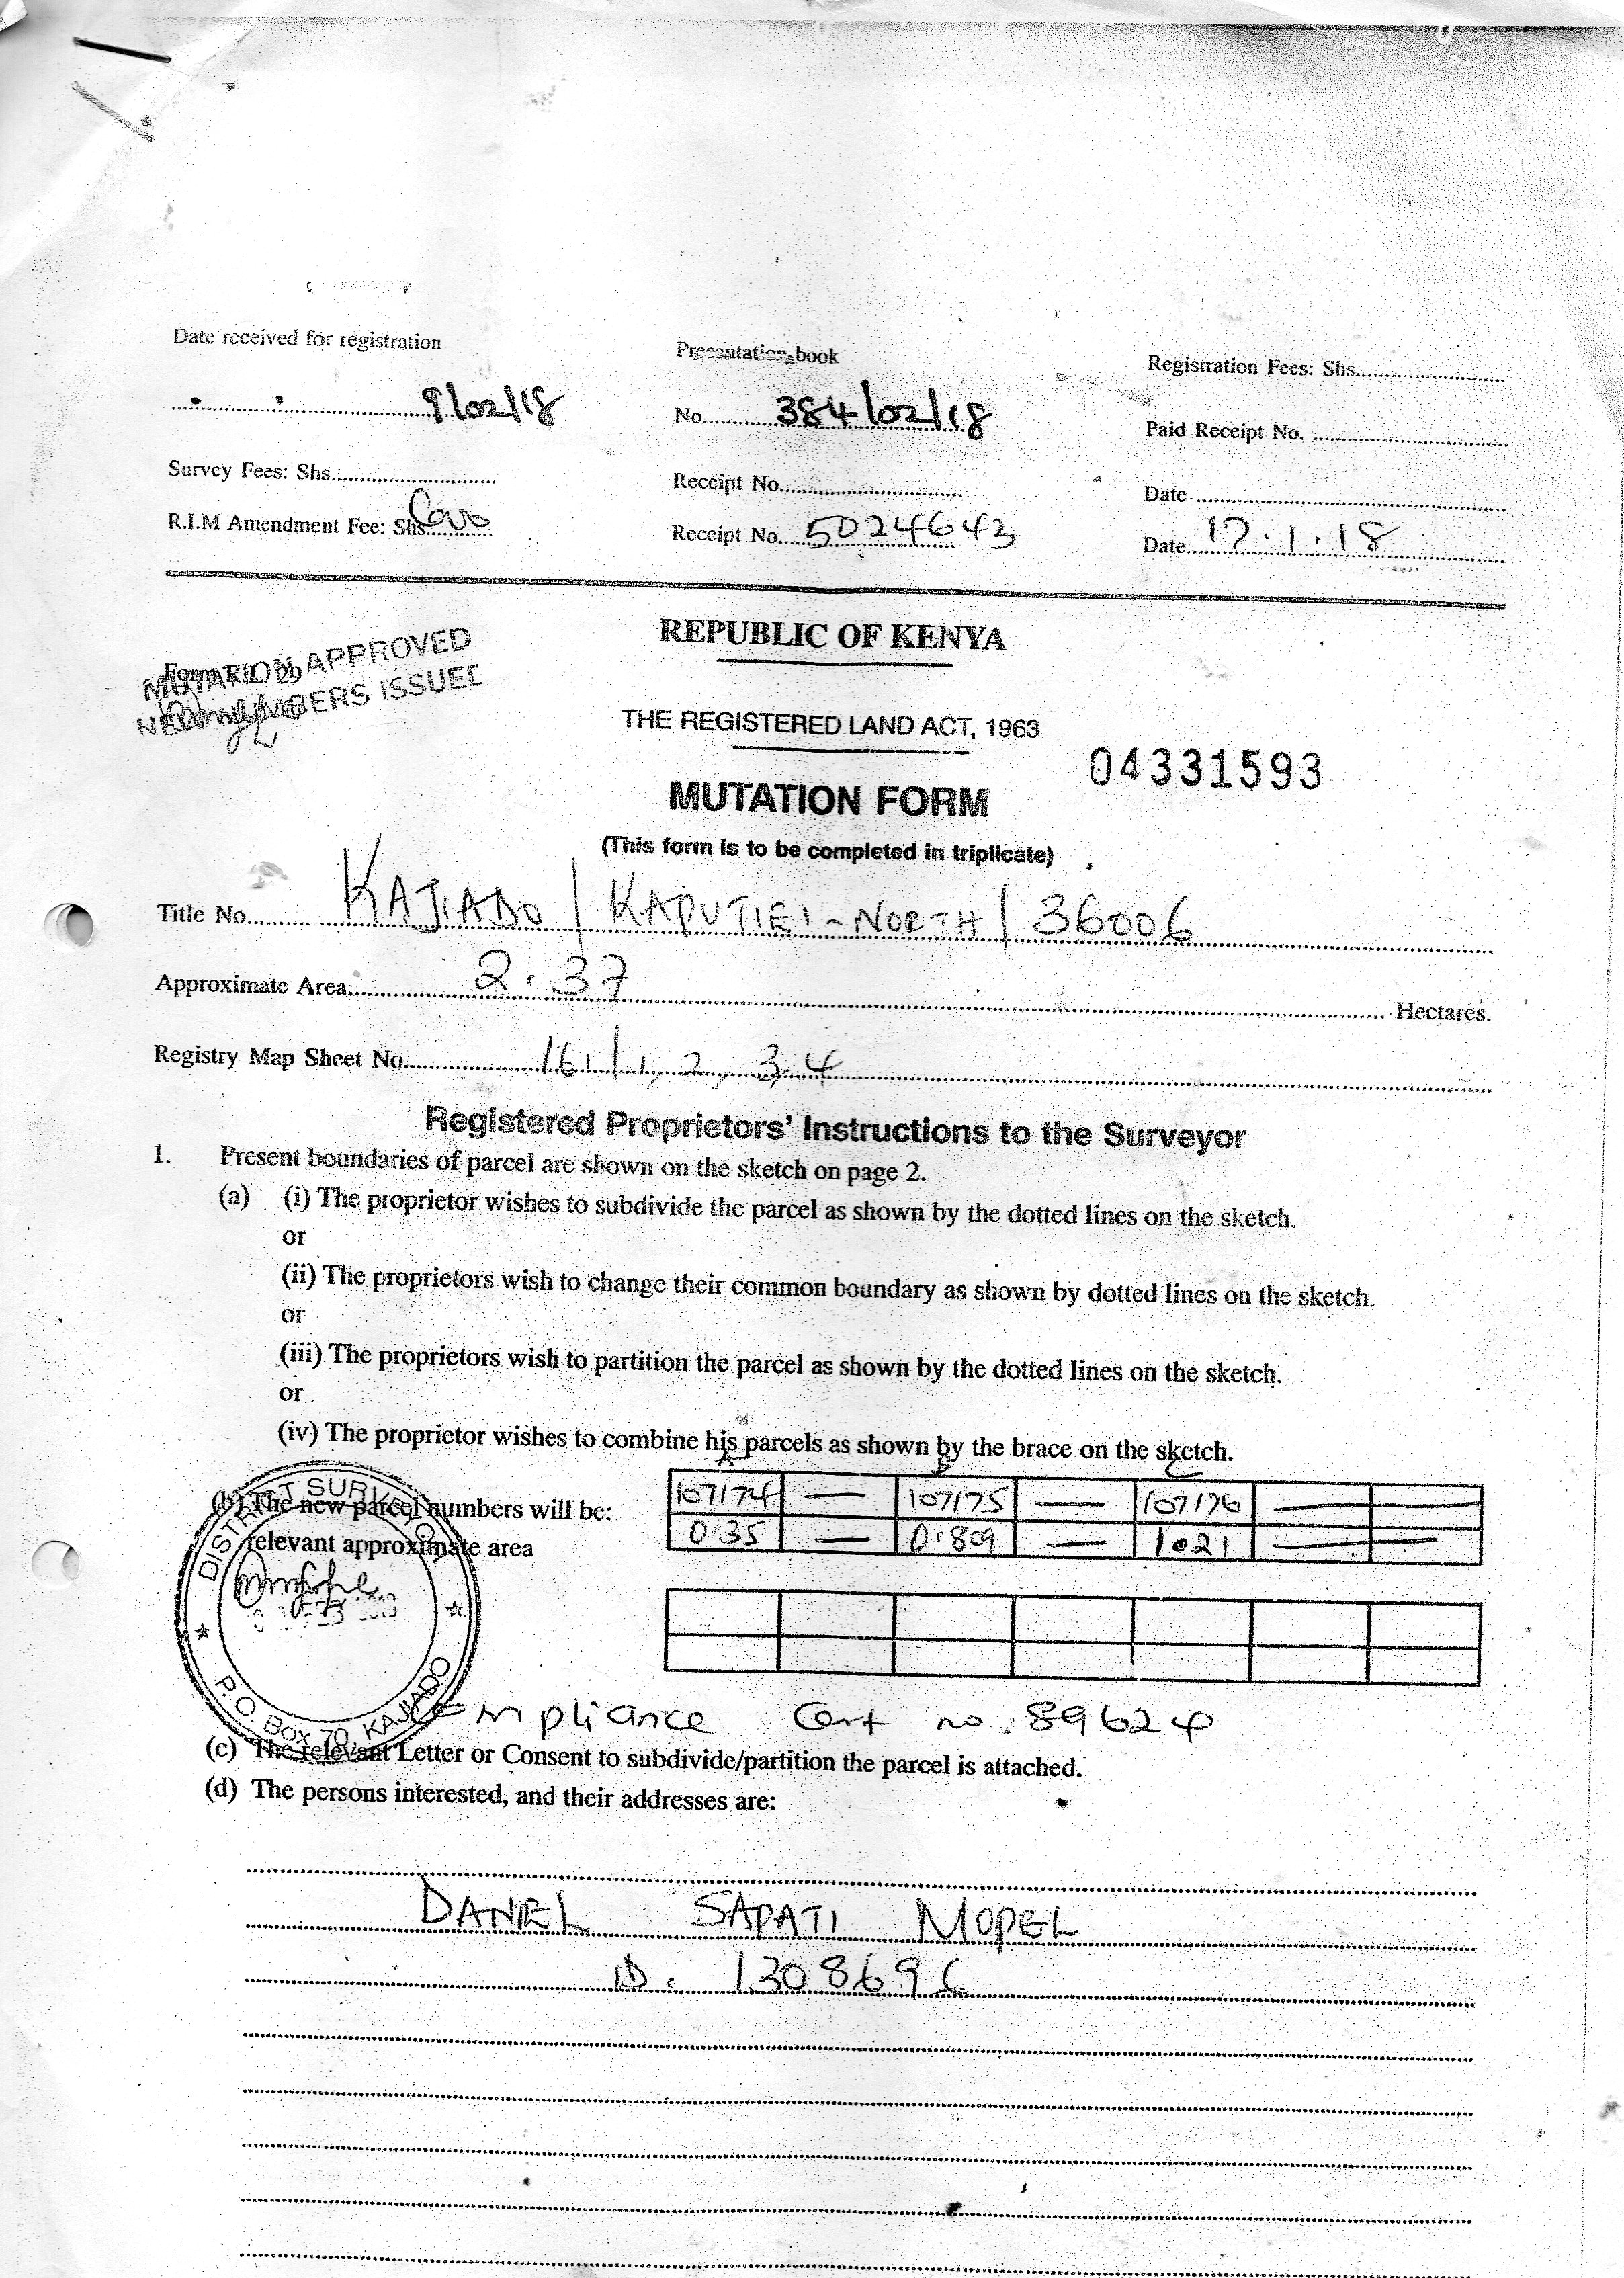 Date received for registration
Presentation book
Registration Fees: Shs
9/02/18
No. 384/02/18
Paid Receipt No.
Survey Fees: Shs
Receipt No
Date
R.I.M Amendment Fee: Shs
Receipt No. 5024643
Date 17.1.18
REPUBLIC OF KENYA
MUTATION APPROVED
NEW NUMBERS ISSUED
THE REGISTERED LAND ACT, 1963
04331593
MUTATION FORM
(This form is to be completed in triplicate)
Title No. KAJIADO / KAPUTIEI - NORTH / 36006
Approximate Area 2.37 Hectares.
Registry Map Sheet No. 161/1, 2, 3, 4
Registered Proprietors' Instructions to the Surveyor
1. Present boundaries of parcel are shown on the sketch on page 2.
(a) (i) The proprietor wishes to subdivide the parcel as shown by the dotted lines on the sketch.
or
(ii) The proprietors wish to change their common boundary as shown by dotted lines on the sketch.
or
(iii) The proprietors wish to partition the parcel as shown by the dotted lines on the sketch.
or
(iv) The proprietor wishes to combine his parcels as shown by the brace on the sketch.
A B C
(b) The new parcel numbers will be: 107174 — 107175 — 107176 — —
relevant approximate area 0.35 — 0.809 — 1.021 — —
DISTRICT SURVEYOR
P.O. BOX 70, KAJIADO
Compliance Cert no. 89624
(c) The relevant Letter or Consent to subdivide/partition the parcel is attached.
(d) The persons interested, and their addresses are:
DANIEL SAPATI MOPEL
ID. 1308696